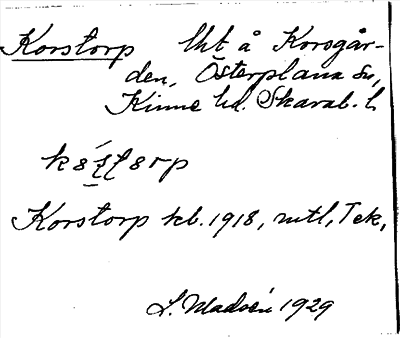 Korstorp lht å Korsgår-
den, Österplana sn,
Kinne hd. Skarab. l.
Korstorp kb. 1918, mtl, Tek,
L. Madsén 1929